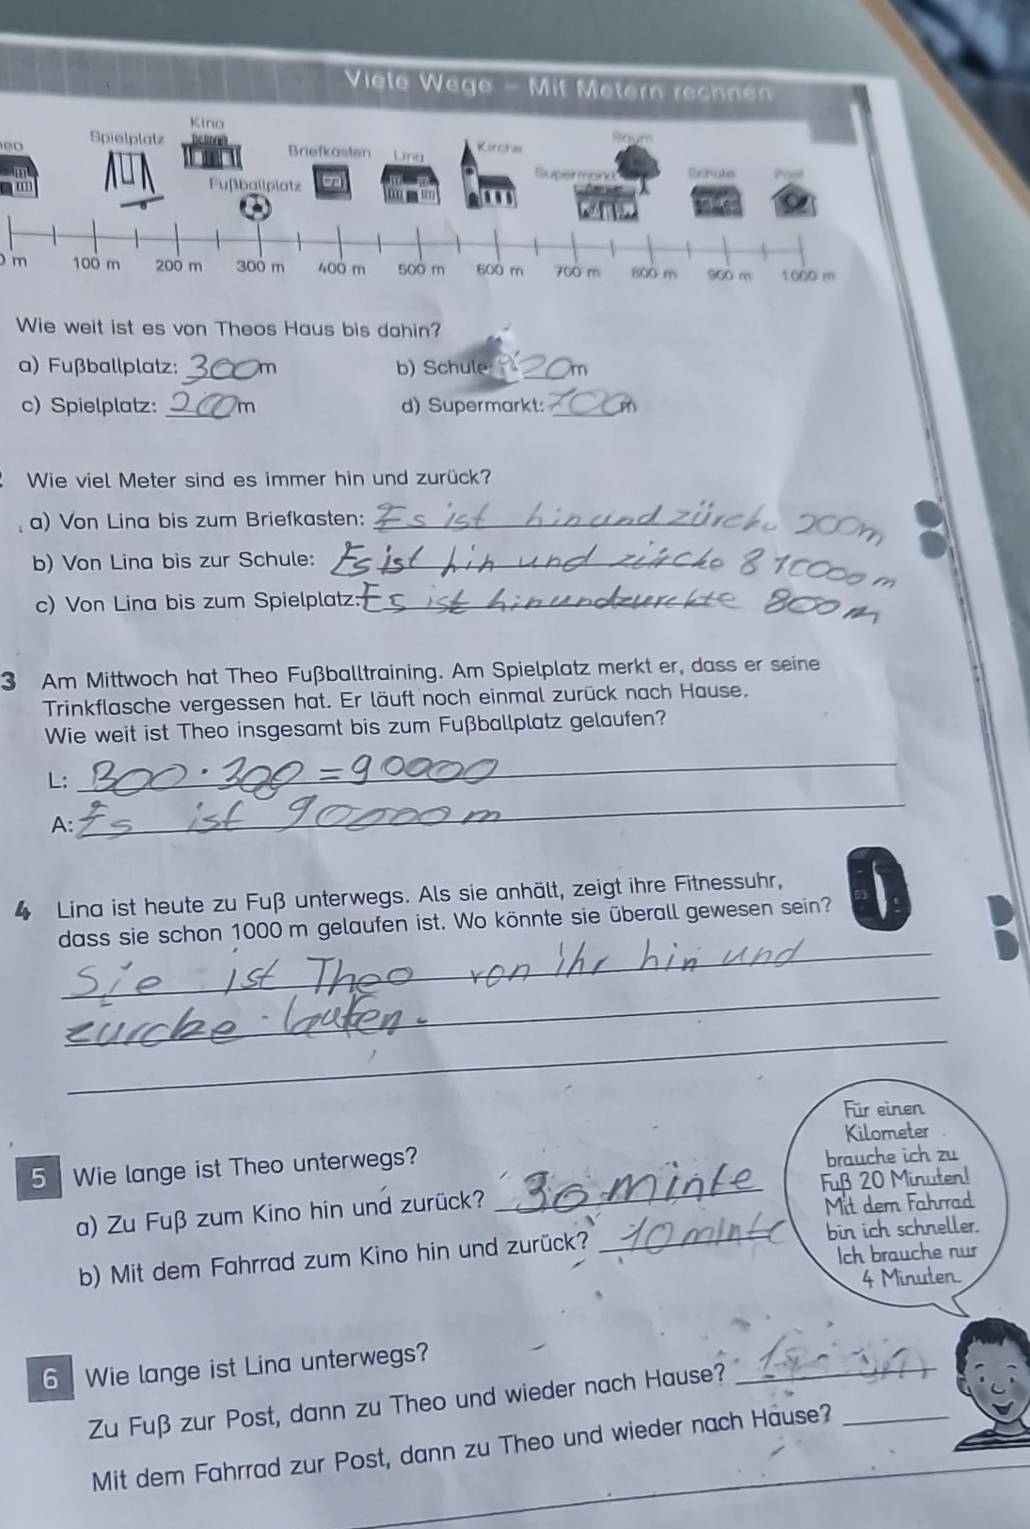 Viele Wege - Mit Metern rechnen
Kino
Spielplatz
Briefkasten
Lina
Kirche
Baum
Supermarkt
Schule
Post
Fußballplatz
m
100 m
200 m
300 m
400 m
500 m
600 m
700 m
800 m
900 m
1000 m
Wie weit ist es von Theos Haus bis dahin?
a) Fußballplatz: 300m
b) Schule: m
c) Spielplatz: 200m
d) Supermarkt: 700m
Wie viel Meter sind es immer hin und zurück?
a) Von Lina bis zum Briefkasten: Es ist hin und zürcke 200m
b) Von Lina bis zur Schule: Es ist hin und zürcke 8 10000m
c) Von Lina bis zum Spielplatz: Es ist hinundzurckte 800m
3 Am Mittwoch hat Theo Fußballtraining. Am Spielplatz merkt er, dass er seine
Trinkflasche vergessen hat. Er läuft noch einmal zurück nach Hause.
Wie weit ist Theo insgesamt bis zum Fußballplatz gelaufen?
L: 300·300=90000
A: Es ist 90000m
4 Lina ist heute zu Fuß unterwegs. Als sie anhält, zeigt ihre Fitnessuhr,
dass sie schon 1000 m gelaufen ist. Wo könnte sie überall gewesen sein?
Sie ist Theo von ihr hin und
zurcke laufen.
Für einen
Kilometer
brauche ich zu
Fuß 20 Minuten!
Mit dem Fahrrad
bin ich schneller.
Ich brauche nur
4 Minuten.
5 Wie lange ist Theo unterwegs?
a) Zu Fuß zum Kino hin und zurück? 30 minte
b) Mit dem Fahrrad zum Kino hin und zurück? 10 minte
6 Wie lange ist Lina unterwegs?
Zu Fuß zur Post, dann zu Theo und wieder nach Hause?
Mit dem Fahrrad zur Post, dann zu Theo und wieder nach Hause?